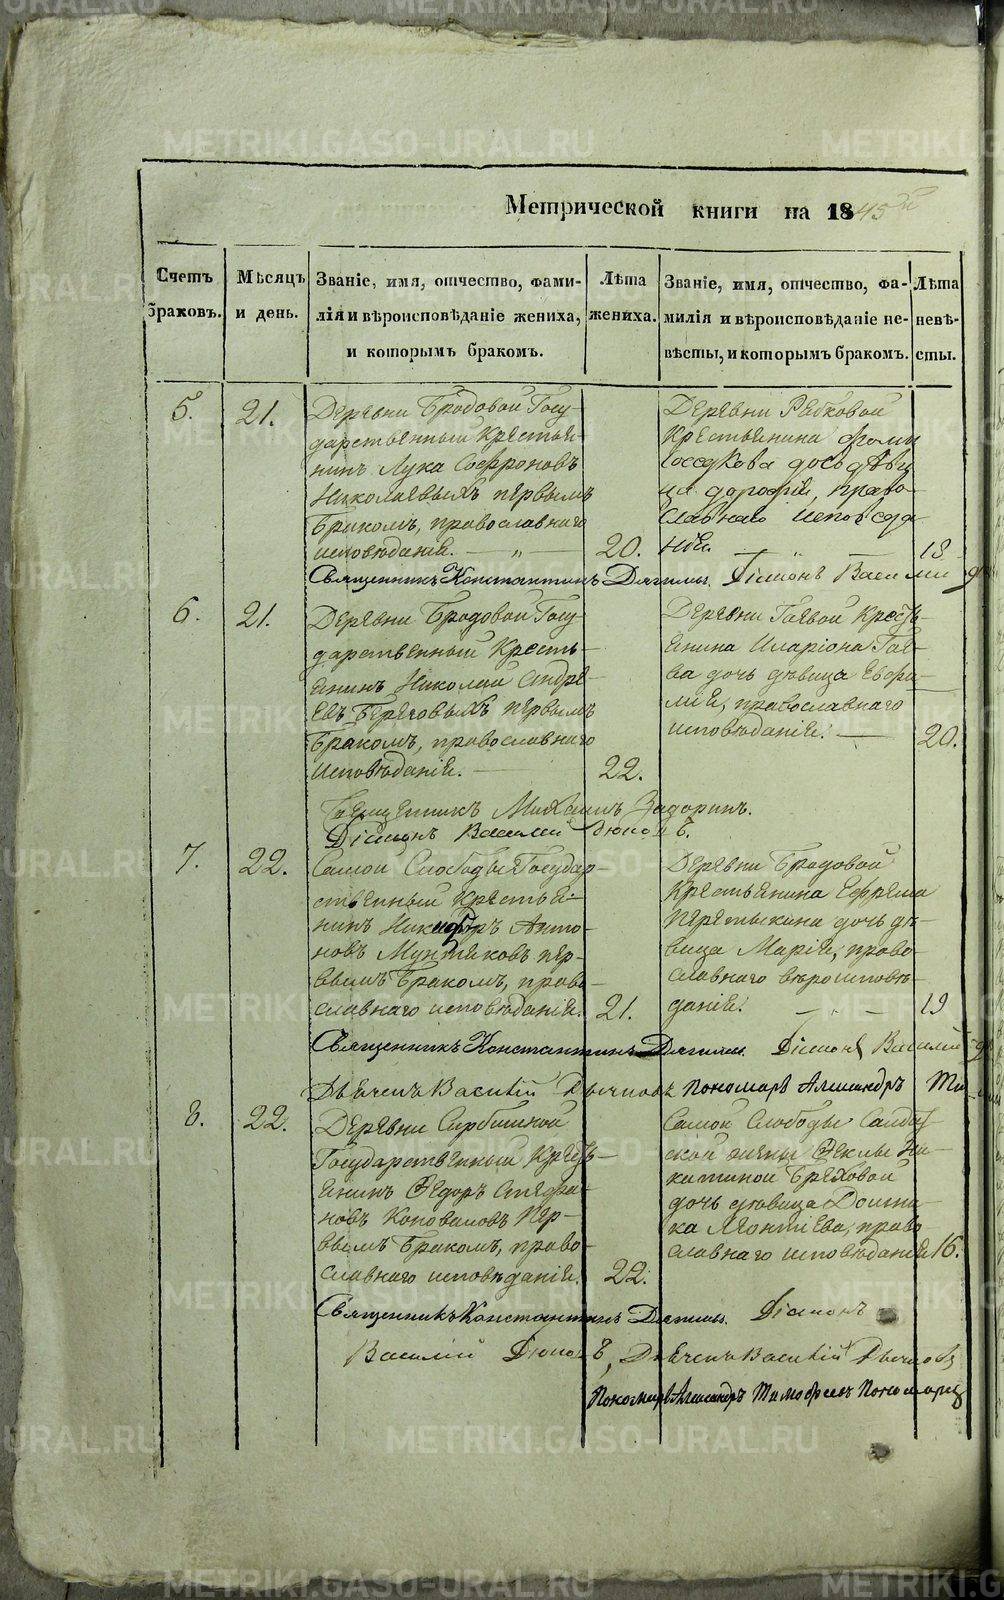 Метрической книги на 1845й
Счетъ браковъ.
Мѣсяцъ и день.
Званіе, имя, отчество, фами-
лія и вѣроисповѣданіе жениха,
и которымъ бракомъ.
Лѣта
жениха.
Званіе, имя, отчество, фа-
милія и вѣроисповѣданіе не-
вѣсты, и которымъ бракомъ.
Лѣта
невѣ-
сты.
5.
21.
Деревни Бродовой Госу-
дарственный Крестья-
нинъ Лука Софроновъ
Николаевыхъ первымъ
бракомъ, православнаго
исповѣданія. — „ —
20.
Деревни Рябковой
Крестьянина Фомы
Соседкова дочь дѣви
ца Дорофія, право-
славнаго исповѣда
нія. — „ —
18
Священникъ Константинъ Дягилевъ. Діаконъ Василій
6.
21.
Деревни Бродовой Госу-
дарственный Кресть-
янинъ Николай Андре-
евъ Береговыхъ первымъ
бракомъ, православнаго
исповѣданія. —
22.
Деревни Гаевой Кресть-
янина Иларіона Гае-
ва дочь дѣвица Евфи-
мія, православнаго
исповѣданія. —
20.
Священникъ Михаилъ Задоринъ.
Діаконъ Василій
7.
22.
Самой Слободы Государ
ственный Крестья-
нинъ Никифоръ Анто-
новъ Мунтяковъ пер-
вымъ бракомъ, право-
славнаго исповѣданія.
21.
Деревни Бродовой
Крестьянина Ефрема
Перетыкина дочь дѣ-
вица Марія, право-
славнаго вѣроисповѣ-
данія. — „ —
19
Священникъ Константинъ Дягилевъ. Діаконъ Василій
Дьячекъ Василій Пономарь Александръ
8.
22.
Деревни Сарбишкой
Государственный Кресть-
янинъ Ѳедоръ Стефа-
новъ Коноваловъ пер-
вымъ бракомъ, право-
славнаго исповѣданія.
22.
Самой Слободы
Ѳеклы Ни-
китиной Бреховой
дочь дѣвица Домни-
ка Леонтіева, право-
славнаго исповѣданія
16.
Священникъ Константинъ Дягилевъ. Діаконъ
Василій , Дьячекъ Василій
Пономарь Александръ Тимофеевъ Пономаревъ
METRIKI.GASO-URAL.RU